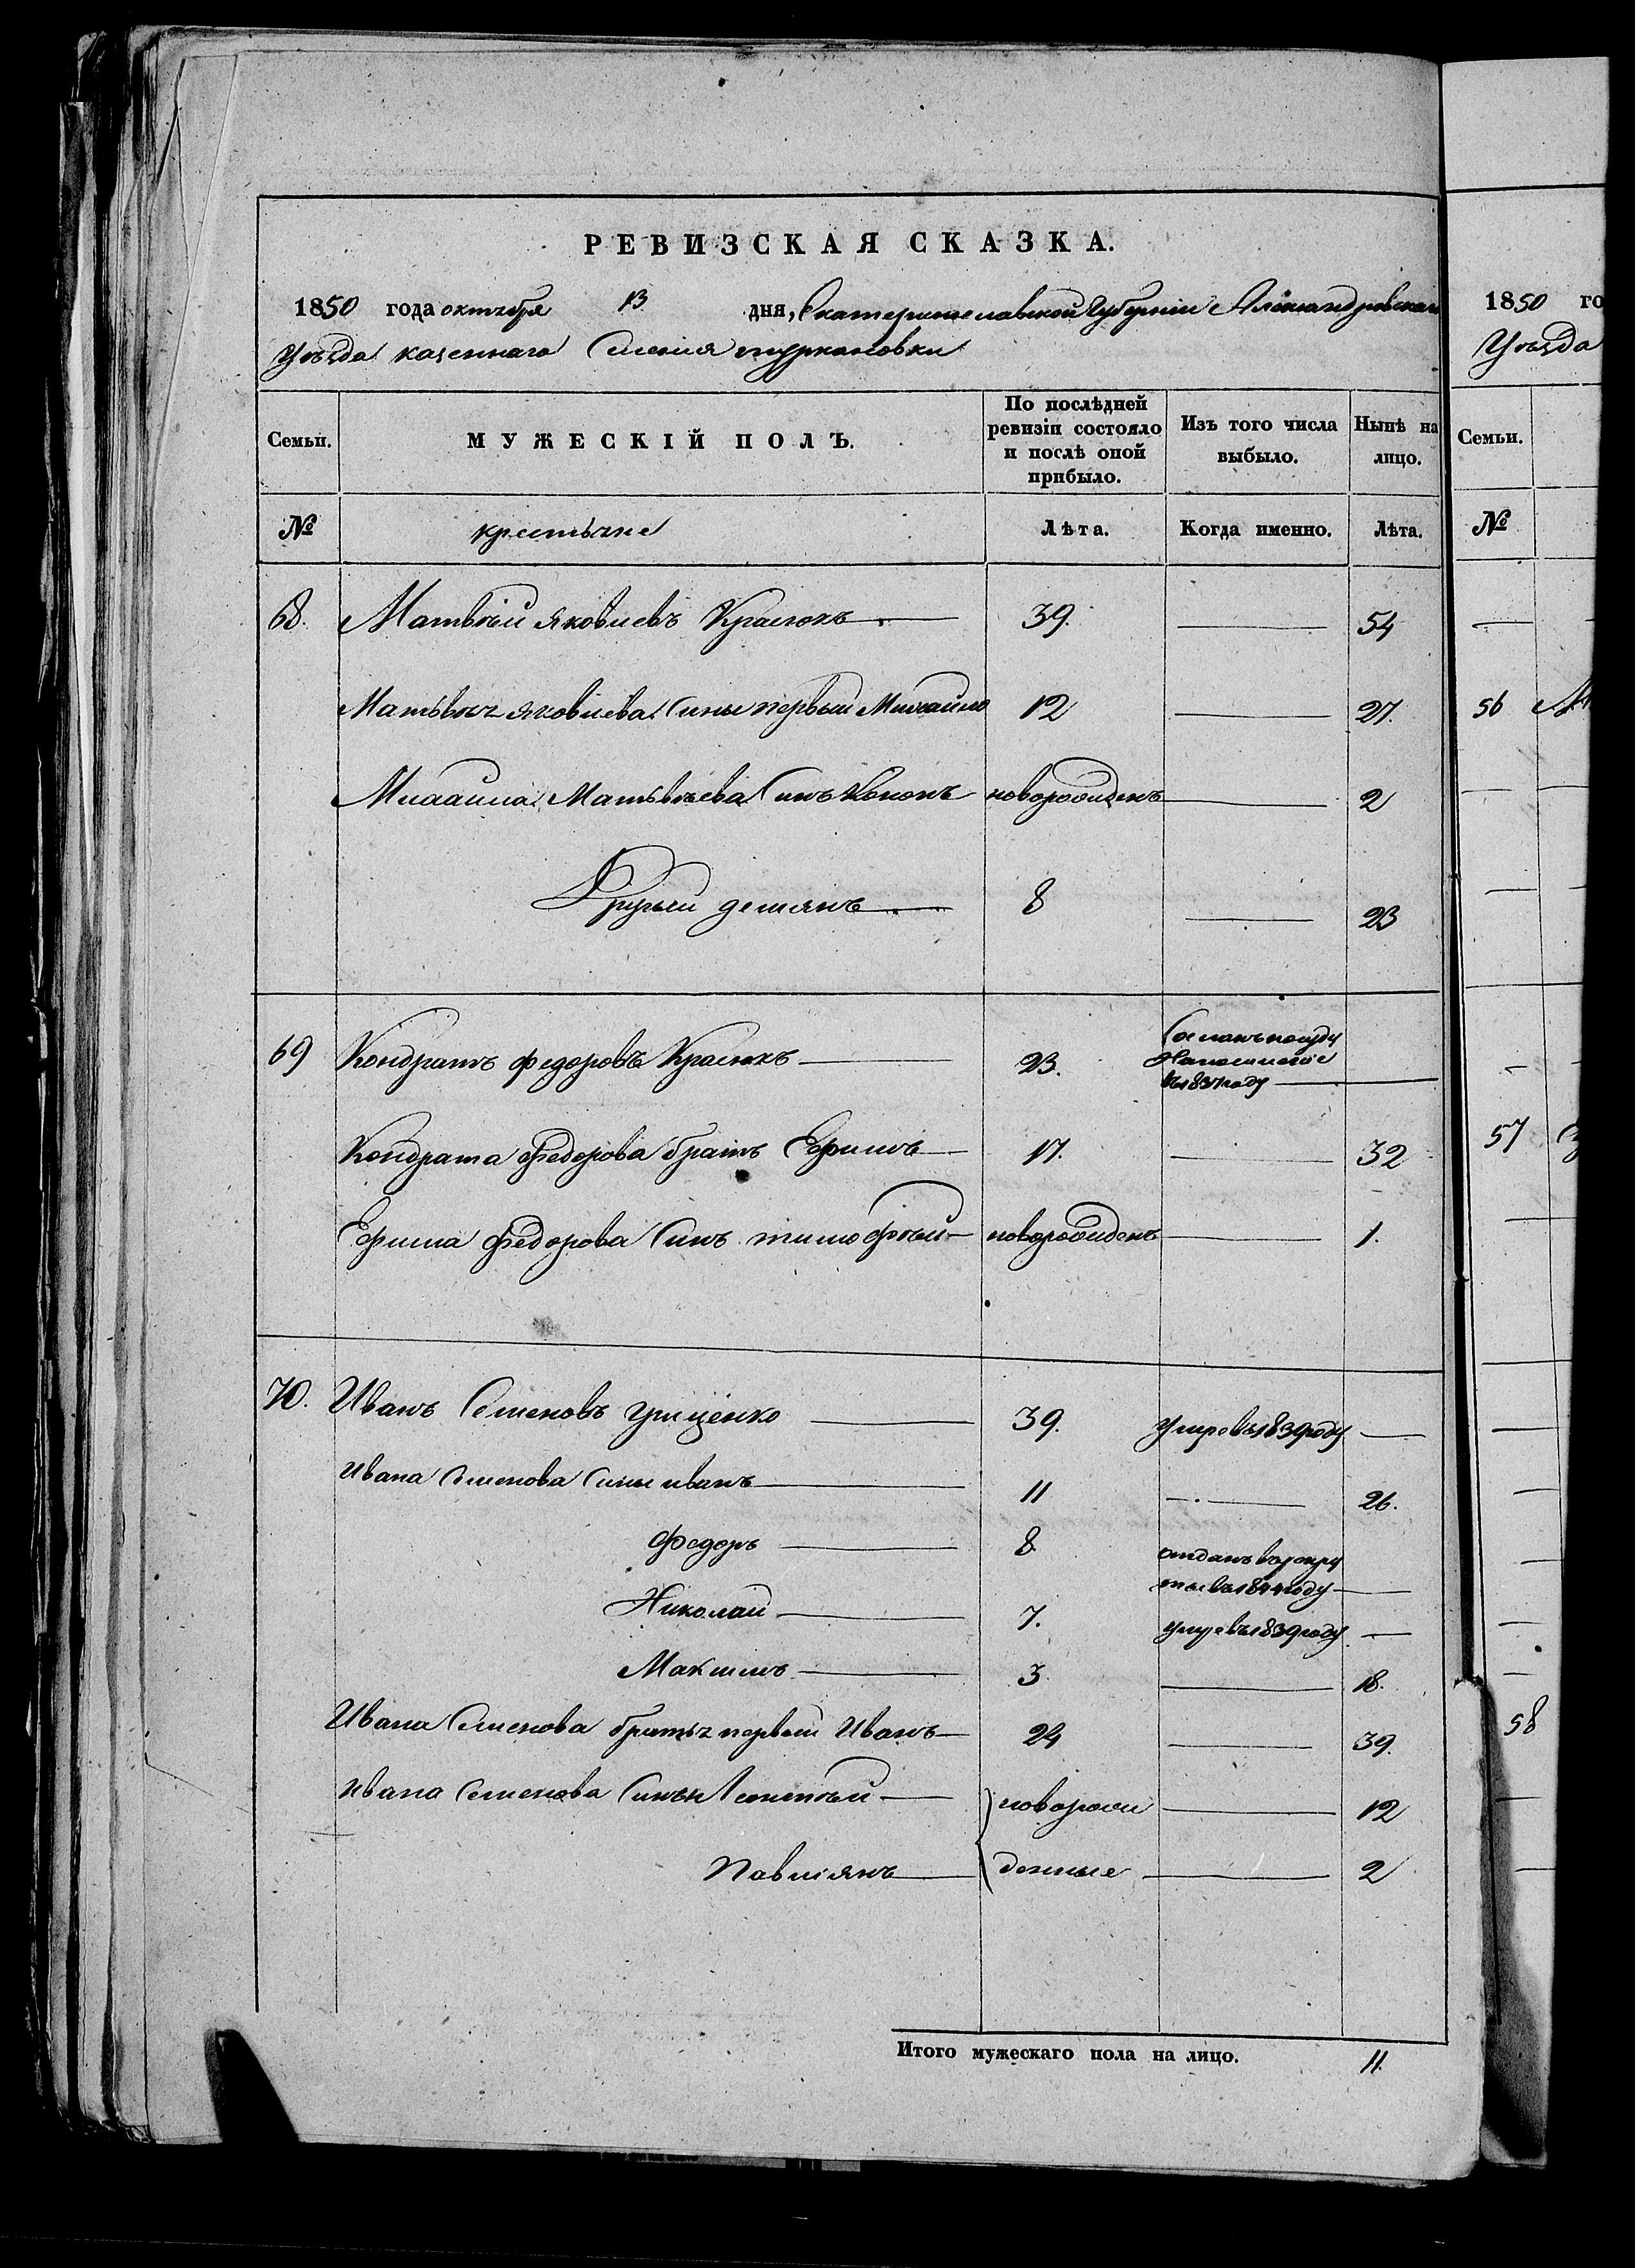 РЕВИЗСКАЯ СКАЗКА.
1850 года октября 13 дня, Екатеринославской Губернии Александровскаго
Уѣзда казеннаго Селения туркановки
Семьи. МУЖЕСКІЙ ПОЛЪ. По послѣдней ревизіи состояло и послѣ оной прибыло. Изъ того числа выбыло. Нынѣ на лицо.
№ крестьяне Лѣта. Когда именно. Лѣта.
68. Матвѣй яковлевъ Краснокъ 39. 54
Матьвѣя яковлева Сины первый Михайло 12 27.
Михаила Матьвѣева Синъ Кононъ новорожденъ 2
Другий демянъ 8 23
69 Кондратъ федоровъ Краснокъ 23. Сосланъ посуду На поселение въ 1837 году
Кондрата федорова братъ Ефимъ 17. 32
Ефима федорова Синъ тимофѣй новорожденъ 1.
70. Иванъ Семеновъ грищенко 39. умре въ 1839 году
Ивана Семенова Сины иванъ 11 26.
Федоръ 8. отданъ врекруты въ 1844 году
Николай 7. умре въ 1839 году
Максимъ 3. 18.
Ивана Семенова братья первый Иванъ 24 39.
Ивана Семенова Сины Леонтѣй новорож 12
Павлиянъ денные 2
Итого мужескаго пола на лицо. 11.
1850 го
Уѣзда
Семьи.
№
56
57
58